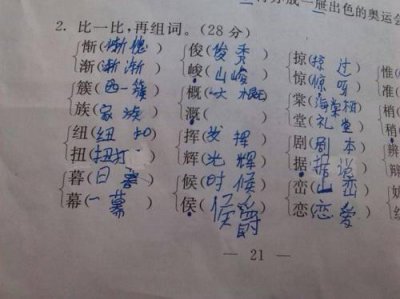 一届出色的奥运会
2. 比一比，再组词。(28 分)
惭(惭愧) 俊(俊秀) 掠(掠过)
渐(渐渐) 峻(山峻) 惊(惊呀)
簇(西一簇) 概(大概) 棠(海棠树)
族(家族) 溉( ) 堂(礼堂)
纽(纽扣) 挥(发挥) 剧(剧本)
扭(扭打) 辉(光辉) 据(据说)
暮(日暮) 候(时候) 峦(山峦)
幕(一幕) 侯(侯爵) 恋(恋爱)
— 21 —